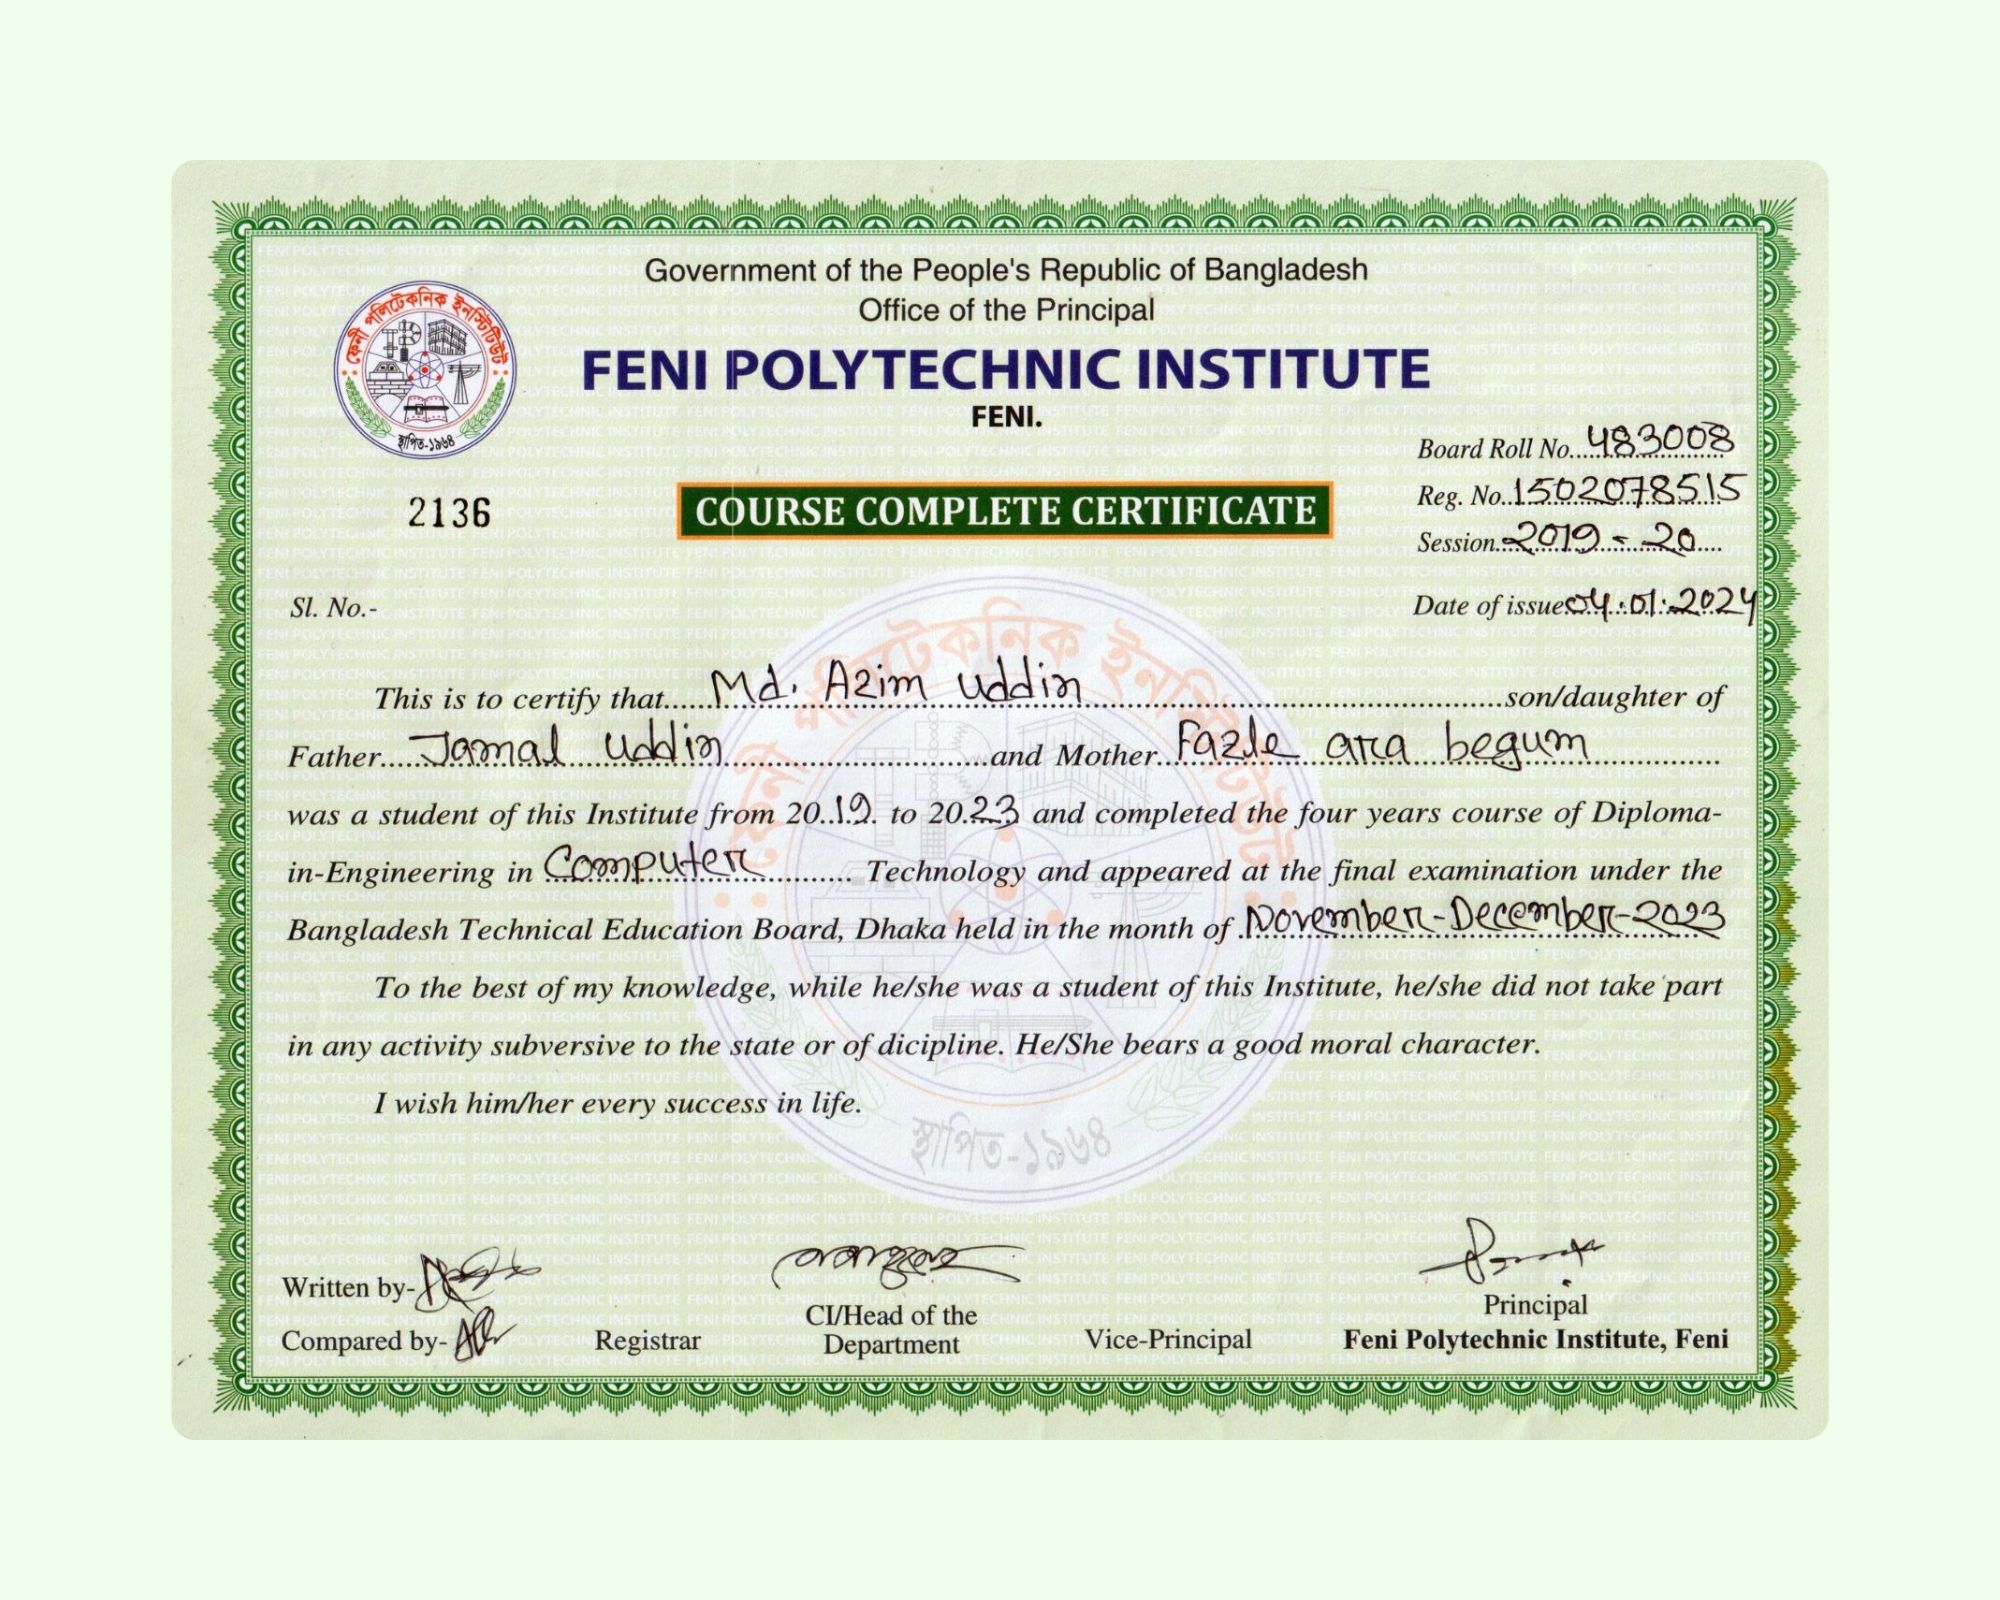 Government of the People's Republic of Bangladesh
Office of the Principal
FENI POLYTECHNIC INSTITUTE
FENI.
ফেনী পলিটেকনিক ইনস্টিটিউট
স্থাপিত-১৯৬৪
Board Roll No. 483008
Reg. No. 1502078515
Session. 2019 - 20
2136
COURSE COMPLETE CERTIFICATE
Sl. No.-
Date of issue 04.01.2024
This is to certify that Md. Azim Uddin son/daughter of
Father Jamal Uddin and Mother Fazle ara begum
was a student of this Institute from 2019 to 2023 and completed the four years course of Diploma-
in-Engineering in Computer Technology and appeared at the final examination under the
Bangladesh Technical Education Board, Dhaka held in the month of November-December-2023
To the best of my knowledge, while he/she was a student of this Institute, he/she did not take part
in any activity subversive to the state or of dicipline. He/She bears a good moral character.
I wish him/her every success in life.
ফেনী পলিটেকনিক ইনস্টিটিউট
স্থাপিত-১৯৬৪
Written by-
Compared by-
Registrar
CI/Head of the
Department
Vice-Principal
Principal
Feni Polytechnic Institute, Feni